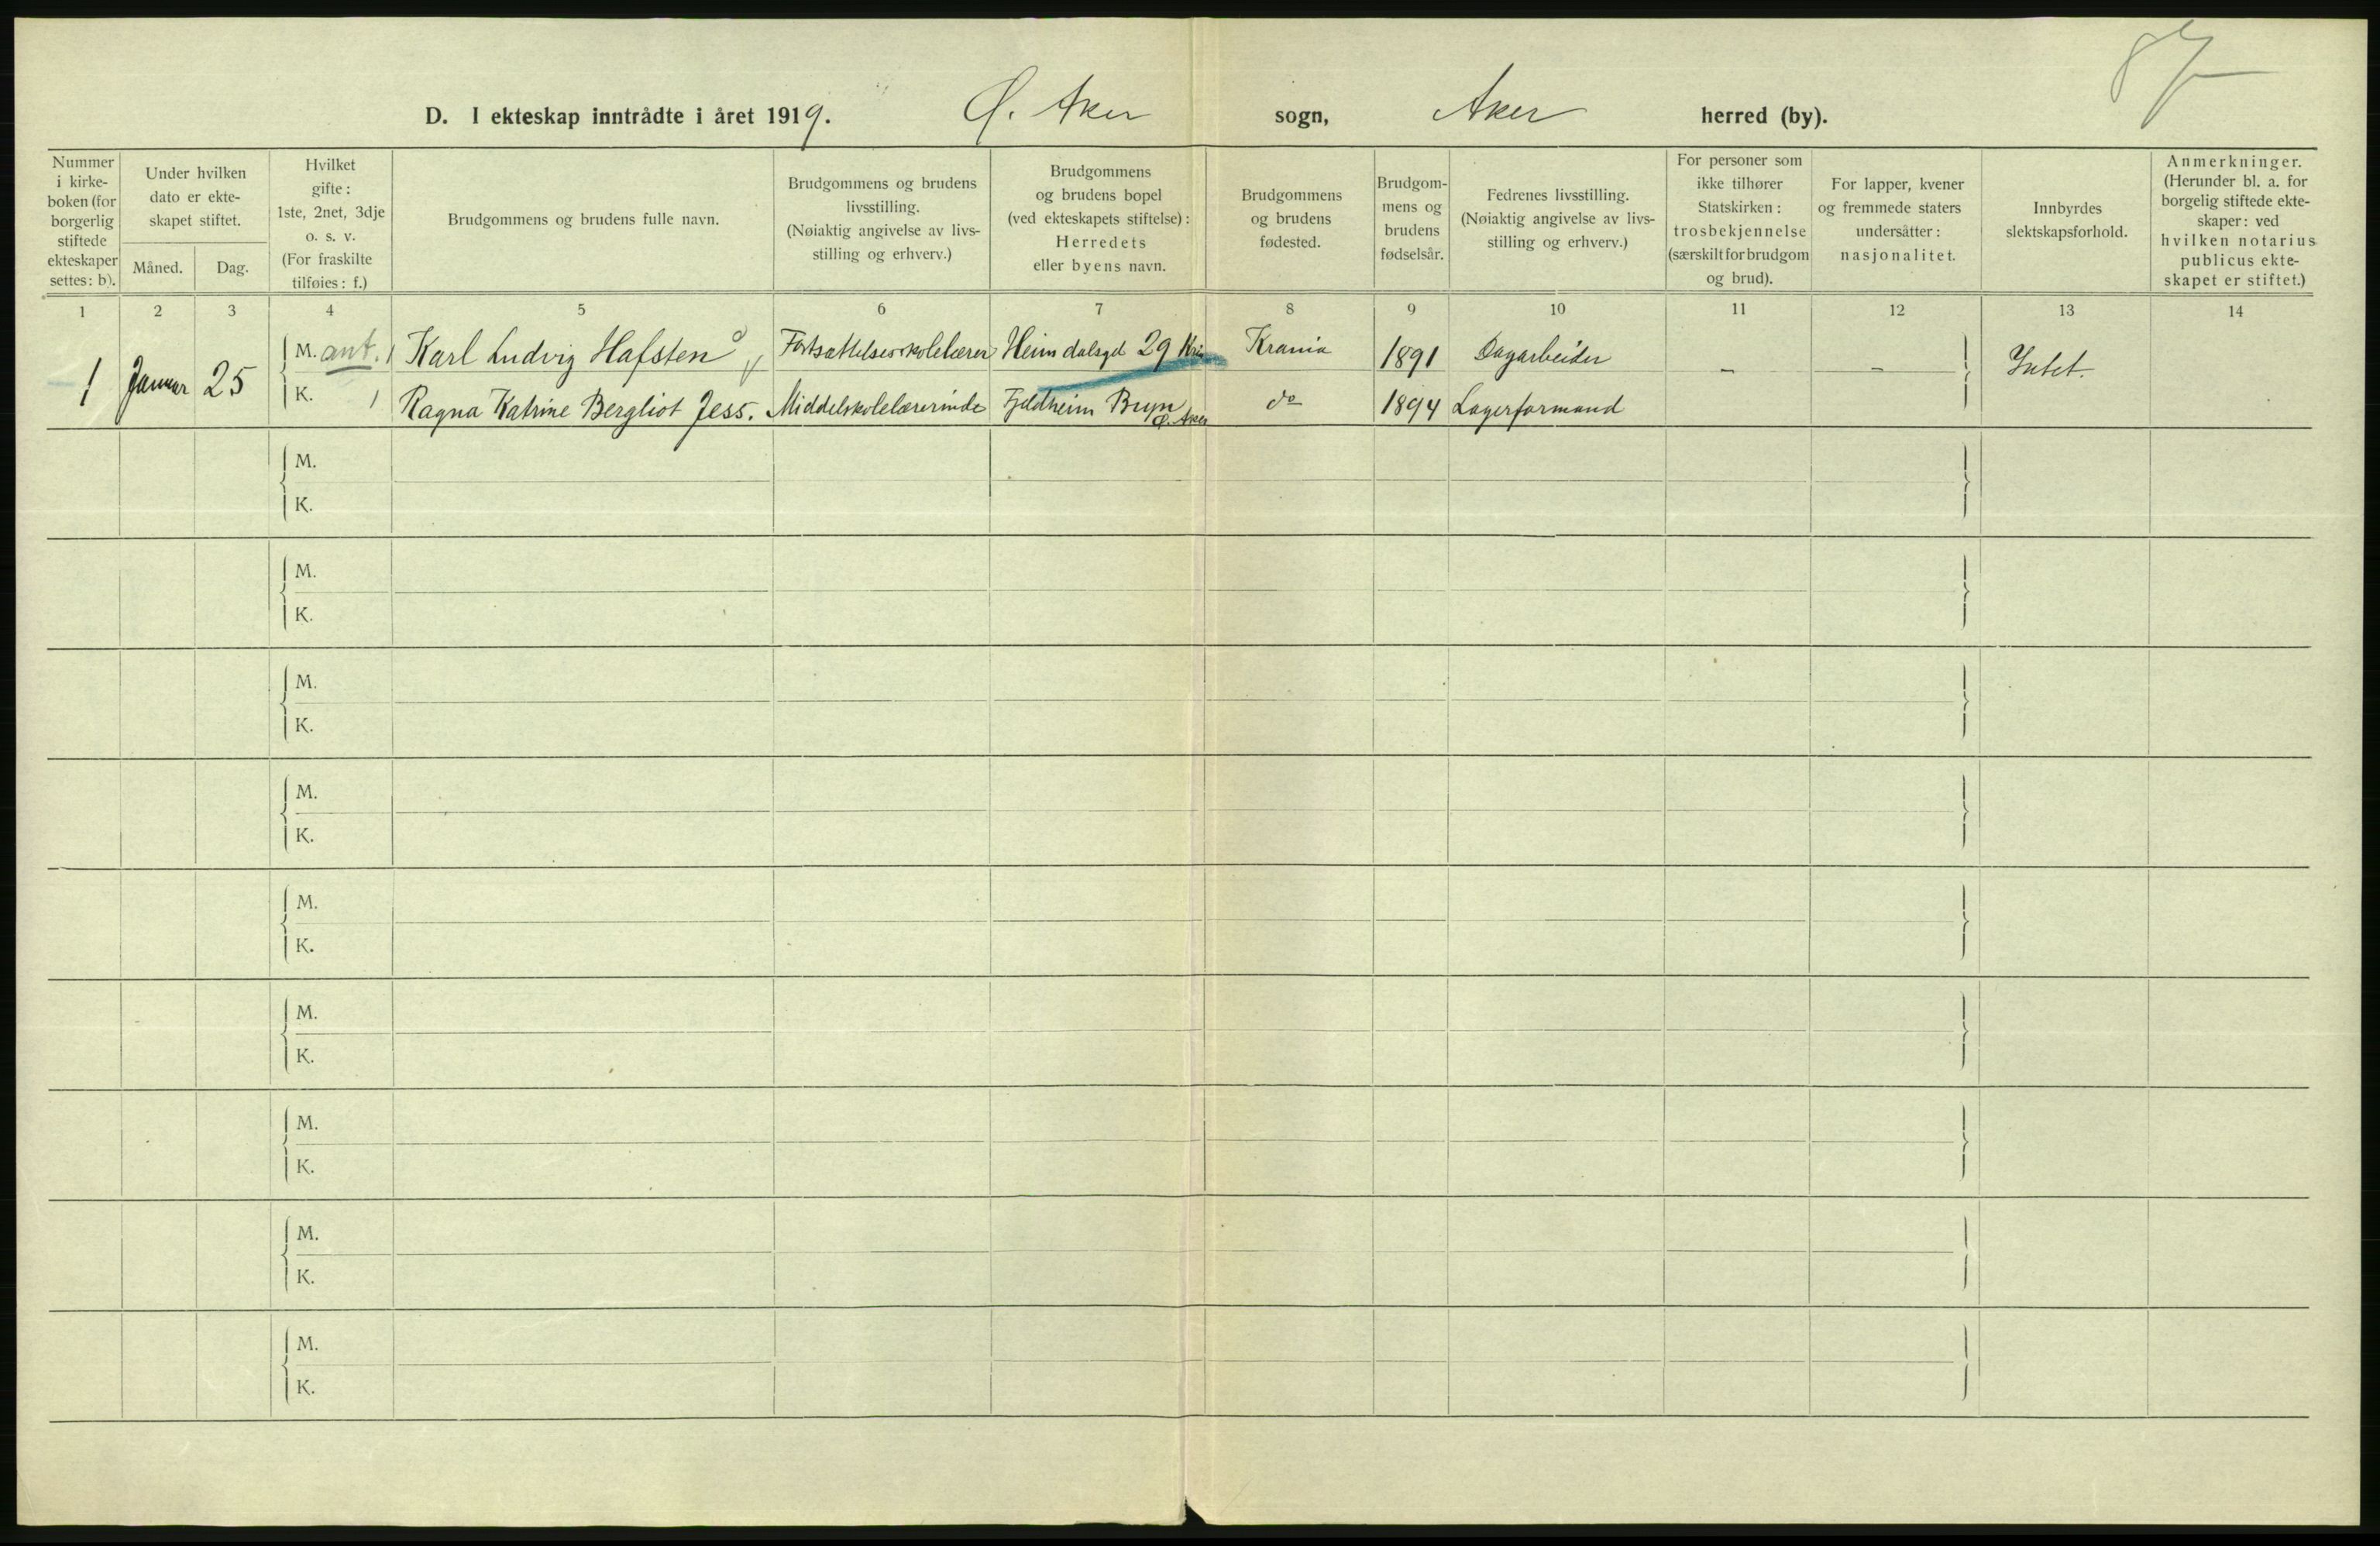 87
D. I ekteskap inntrådte i året 1919. Ø. Aker sogn, Aker herred (by).
Nummer i kirke- boken (for borgerlig stiftede ekteskaper settes: b).
Under hvilken dato er ekte- skapet stiftet.
Måned. Dag.
Hvilket gifte: 1ste, 2net, 3dje o. s. v. (For fraskilte tilføies: f.)
Brudgommens og brudens fulle navn.
Brudgommens og brudens livsstilling. (Nøiaktig angivelse av livs- stilling og erhverv.)
Brudgommens og brudens bopel (ved ekteskapets stiftelse): Herredets eller byens navn.
Brudgommens og brudens fødested.
Brudgom- mens og brudens fødselsår.
Fedrenes livsstilling. (Nøiaktig angivelse av livs- stilling og erhverv.)
For personer som ikke tilhører Statskirken: trosbekjennelse (særskilt for brudgom og brud).
For lapper, kvener og fremmede staters undersåtter: nasjonalitet.
Innbyrdes slektskapsforhold.
Anmerkninger. (Herunder bl. a. for borgelig stiftede ekte- skaper: ved hvilken notarius publicus ekte- skapet er stiftet.)
1 2 3 4 5 6 7 8 9 10 11 12 13 14
1 Januar 25 M. ant. 1 Karl Ludvig Hafsten Fortsættelsesskolelærer Heimdalsgd 29 Kria Krania 1891 Dagarbeider - - Intet.
K. 1 Ragna Katrine Bergliot Jess. Middelskolelærerinde Fjeldheim Bryn Ø. Aker do 1894 Lagerformand
M.
K.
M.
K.
M.
K.
M.
K.
M.
K.
M.
K.
M.
K.
M.
K.
M.
K.